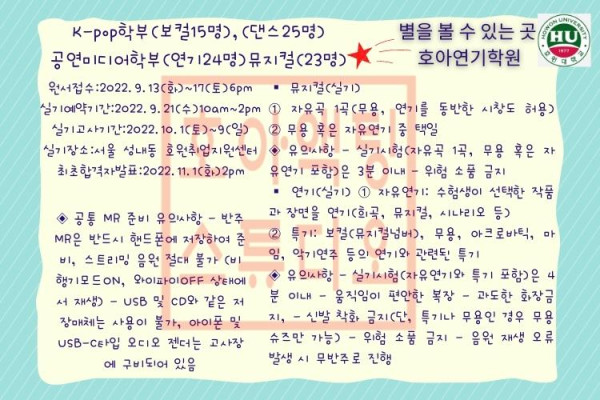 K-pop학부(보컬15명), (댄스25명)
공연미디어학부(연기24명)뮤지컬(23명)
별을 볼 수 있는 곳
호아연기학원
HOWON UNIVERSITY
HU
1977
호원대학교
원서접수:2022. 9.13(화)~17(토)6pm
실기예약기간:2022. 9.21(수)10am~2pm
실기고사기간:2022. 10.1(토)~9(일)
실기장소:서울 성내동 호원취업지원센터
최초합격자발표:2022.11.1(화)2pm
◈ 공통 MR 준비 유의사항 - 반주
MR은 반드시 핸드폰에 저장하여 준
비, 스트리밍 음원 절대 불가 (비
행기모드ON, 와이파이OFF 상태에
서 재생) - USB 및 CD와 같은 저
장매체는 사용이 불가, 아이폰 및
USB-C타입 오디오 젠더는 고사장
에 구비되어 있음
▪ 뮤지컬(실기)
① 자유곡 1곡(무용, 연기를 동반한 시창도 허용)
② 무용 혹은 자유연기 중 택일
◈ 유의사항 - 실기시험(자유곡 1곡, 무용 혹은 자
유연기 포함)은 3분 이내 - 위험 소품 금지
▪ 연기(실기) ① 자유연기: 수험생이 선택한 작품
과 장면을 연기(희곡, 뮤지컬, 시나리오 등)
② 특기: 보컬(뮤지컬넘버), 무용, 아크로바틱, 마
임, 악기연주 등의 연기와 관련된 특기
◈ 유의사항 - 실기시험(자유연기와 특기 포함)은 4
분 이내 - 움직임이 편안한 복장 - 과도한 화장금
지, - 신발 착화 금지(단, 특기나 무용인 경우 무용
슈즈만 가능) - 위험 소품 금지 - 음원 재생 오류
발생 시 무반주로 진행
호아액팅
스튜디오